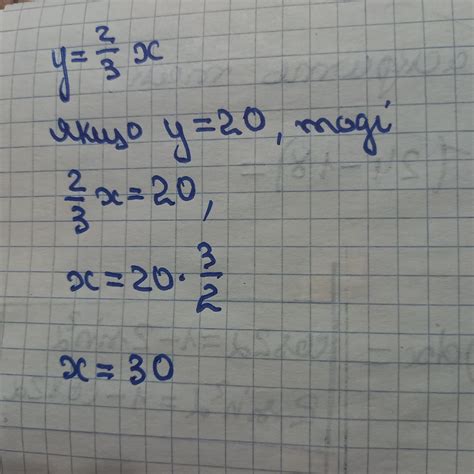 y = 2/3 x
якщо y = 20, тоді
2/3 x = 20,
x = 20 · 3/2
x = 30